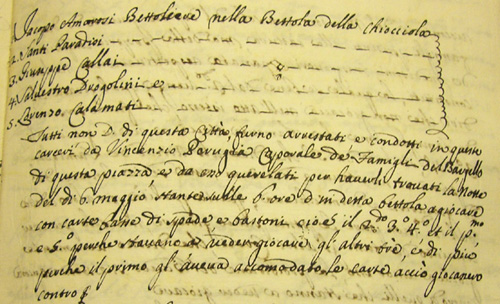 1. Jacopo Amorosi Bettoliere nella Bettola della Chiocciola
2. Santi Paradisi
3. Giuseppe Callai
4. Salvestro Drogolini e
5. Lorenzo Calamati
Tutti non D. di questa Città furno arrestati e condotti in queste
carceri da Vincenzio Perugia Caporale de' Famigli del Bargello
di questa piazza e da esso querelati per haverli trovati la notte
del dì 6 maggio stante sulle 6 ore d in detta bettola a giocare
con carte basse di spade e bastoni cioè il 2do 3. 4. et il pmo
e 5o perche stavano a veder giocare gl'altri trè, e di più
perche il primo gl'aveva accomodato le carte acciò giocassero
contro